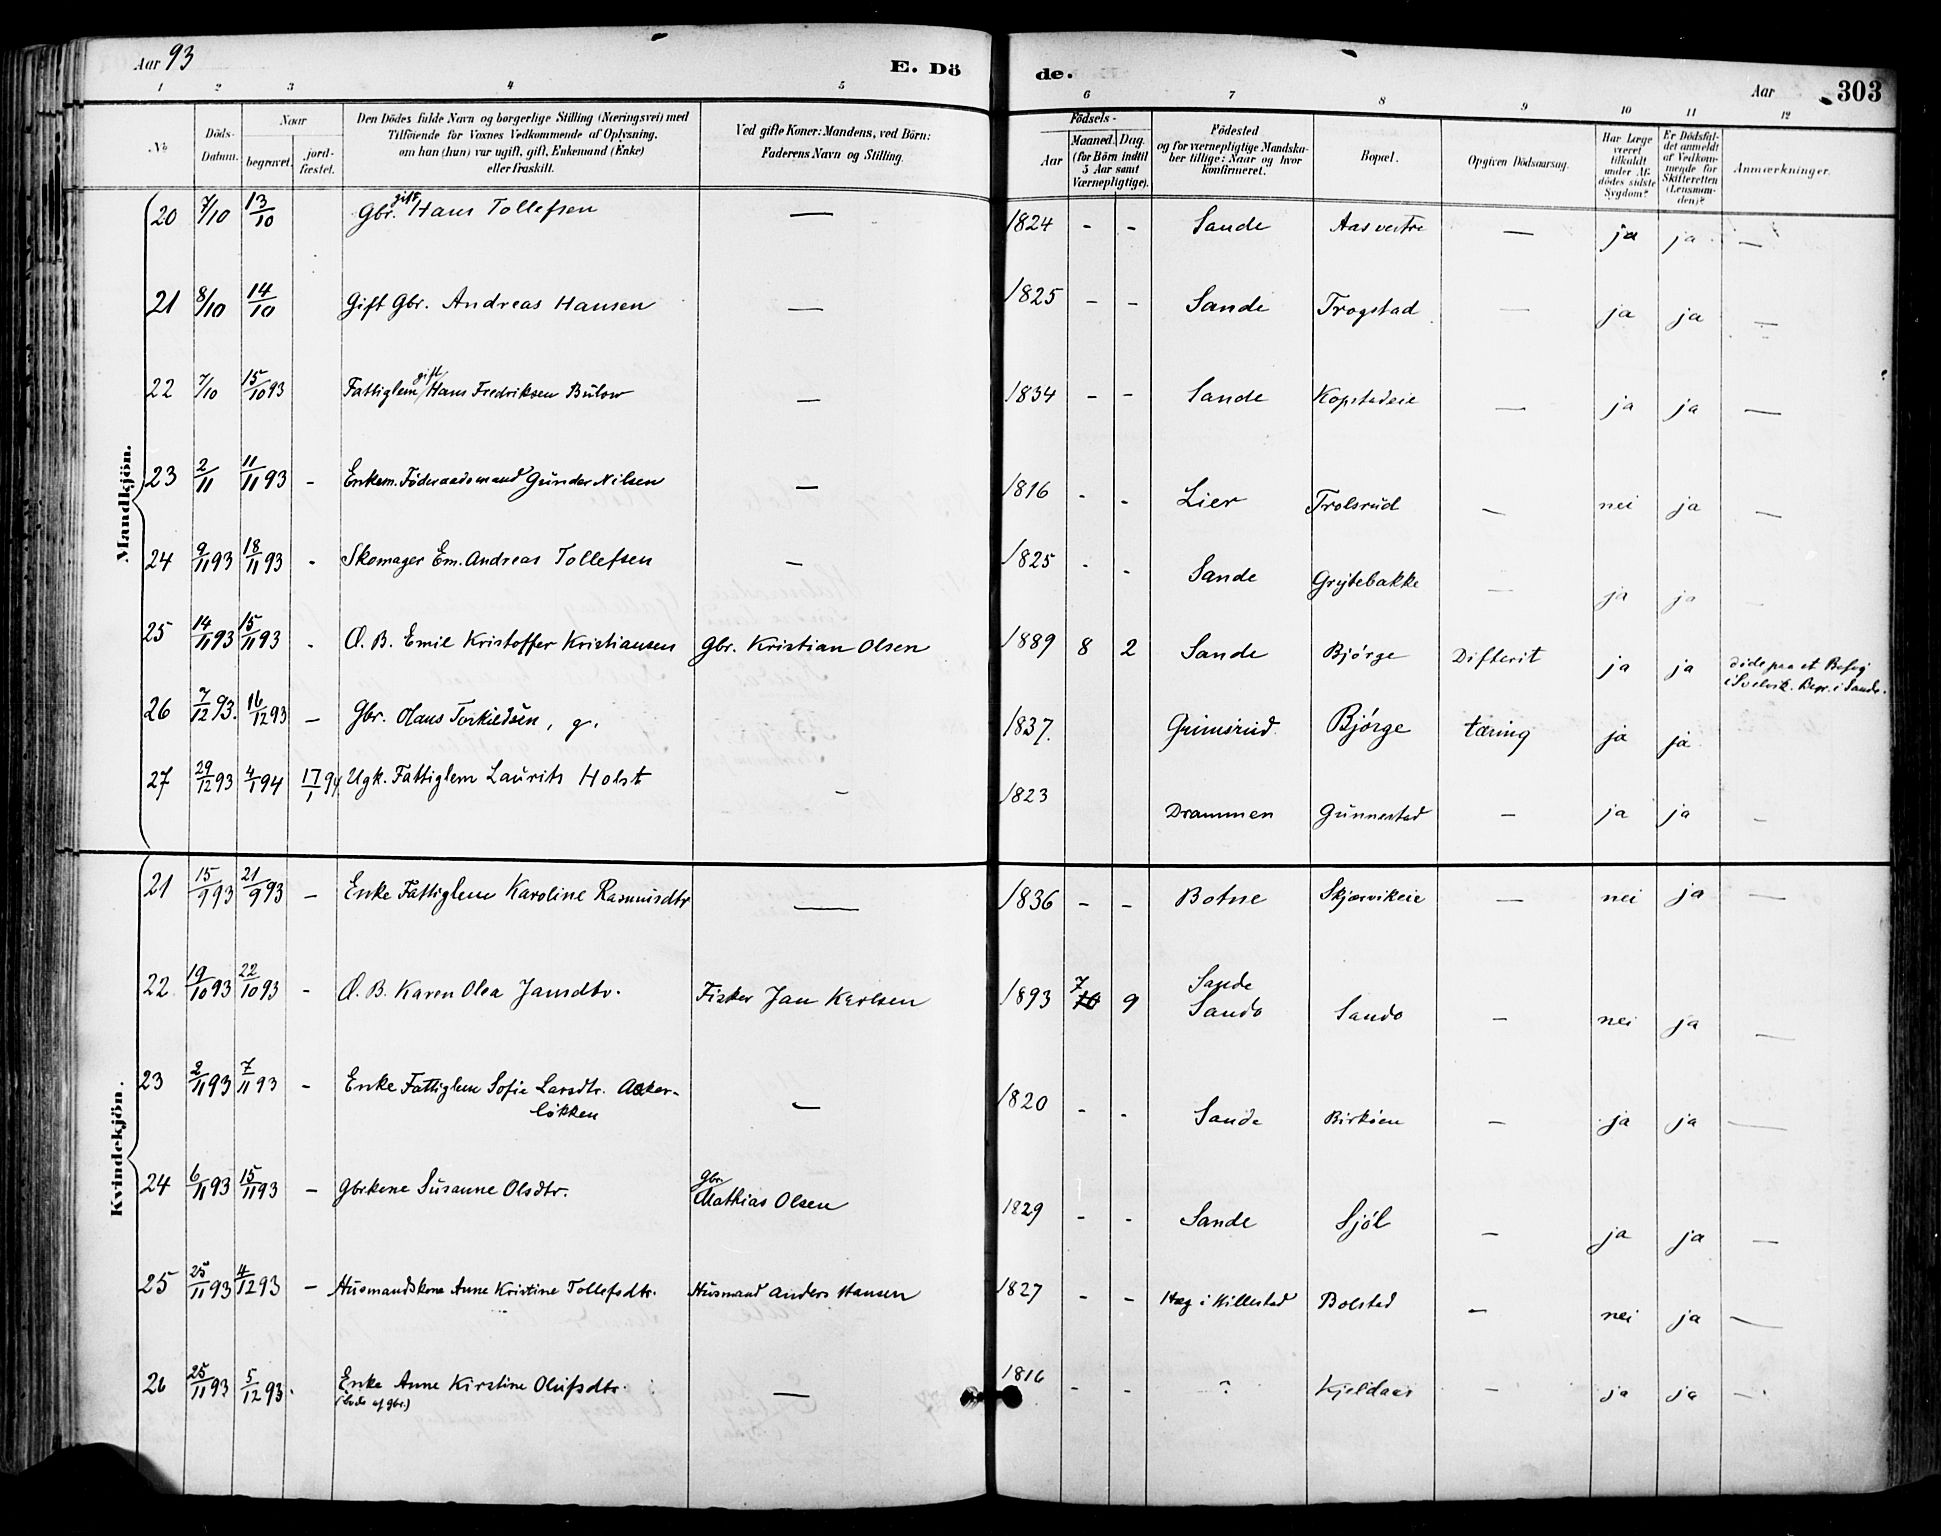 Aar 93 E. Dö de. Aar 303
1 2 3 4 5 6 7 8 9 10 11 12
No Döds-Datum. Naar begravet. jord-fæstet. Den Dödes fulde Navn og borgerlige Stilling (Næringsvei) med Tilföiende for Voxnes Vedkommende af Oplysning, om han (hun) var ugift, gift, Enkemand (Enke) eller fraskilt. Ved gifte Koner: Mandens, ved Börn: Faderens Navn og Stilling. Födsels- Aar Maaned. Dag. (for Börn indtil 5 Aar samt Værnepligtige). Födested og for værnepligtige Mandskaber tillige: Naar og hvor konfirmeret. Bopæl. Opgiven Dödsaarsag. Har Læge været tilkaldt under Afdödes sidste Sygdom? Er Dödsfaldet anmeldt af Vedkommende for Skifteretten (Lensmanden)? Anmærkninger.
Mandkjön.
20 7/10 13/10 Gbr. gift Hans Tollefsen — 1824 - - Sande Aas vestre — ja ja —
21 8/10 14/10 Gift Gbr. Andreas Hansen — 1825 - - Sande Trogstad — ja ja —
22 7/10 15/10 93 Fattiglem gift Hans Fredriksen Bülow — 1834 - - Sande Kopstadeie — ja ja —
23 2/11 11/11 93 - Enkem. Föderaadsmand Gunder Nilsen — 1816 - - Lier Trolsrud — nei ja —
24 9/11 93 18/11 93 - Skomager Em. Andreas Tollefsen — 1825 - - Sande Grytebakke — ja ja —
25 14/11 93 15/11 93 - Æ. B. Emil Kristoffer Kristiansen Gbr. Kristian Olsen 1889 8 2 Sande Bjørge Difterit ja ja døde paa et Besøg
i Svelvik. Begr. i Sande.
26 7/12 93. 16/12 93 — Gbr. Olaus Torkildsen, g. 1837. Grimsrud Bjørge tæring ja ja
27 29/12 93 4/1 94 17/1 94 Ugk. Fattiglem Laurits Holst - 1823 Drammen Gunnestad — ja ja —
Kvindekjön.
21 15/9 93 21/9 93 — Enke Fattiglem Karoline Rasmusdtr — 1836 - - Botne Skjærvikeie — nei ja —
22 19/10 93 22/10 93 - Æ. B. Karen Olea Jansdtr. Fisker Jan Karlsen 1893 7 9 Sande
Sando Sando — nei ja —
23 2/11 93 7/11 93 - Enke Fattiglem Sofie Larsdtr. Asker-
løkken — 1820 - - Sande Birkøen — ja ja —
24 6/11 93 15/11 93 — Gbrkone Susanne Olsdtr. Gbr.
Mathias Olsen 1829 - - Sande Sjøl — ja ja —
25 25/11 93 4/12 93 — Husmandskone Anne Kristine Tollefsdtr. Husmand Anders Hansen 1827 - - Hæg i Killestad Bolstad — nei ja —
26 25/11 93 5/12 93. Enke Anne Kirstine Olufsdtr. — 1816 - - ? Kjeldaas — ja ja —
(Enke af gbr.)